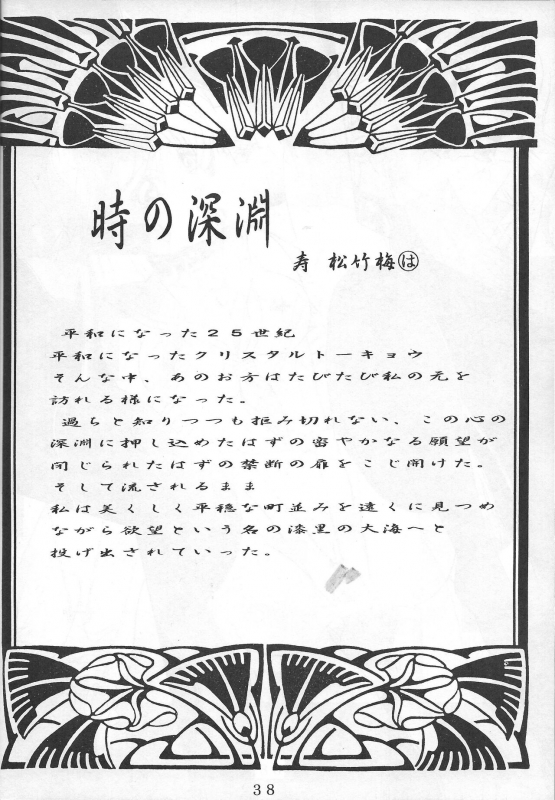 時の深淵
寿 松竹梅は
平和になった25世紀
平和になったクリスタルトーキョウ
そんな中、あのお方はたびたび私の元を
訪れる様になった。
過ちと知りつつも拒み切れない、この心の
深淵に押し込めたはずの密やかなる願望が
閉じられたはずの禁断の扉をこじ開けた。
そして流されるまま
私は美くしく平穏な町並みを遠くに見つめ
ながら欲望という名の漆黒の大海へと
投げ出されていった。
38